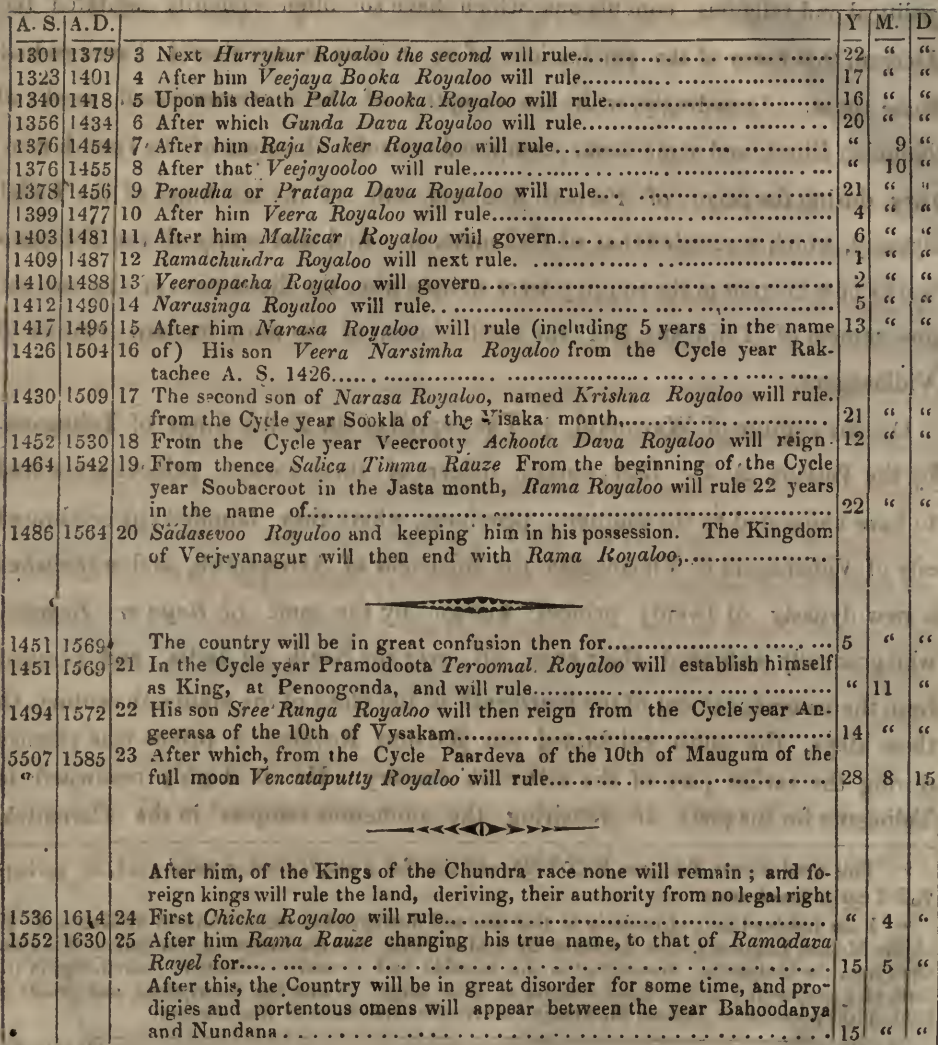 A. S. A. D. Y M. D
1301 1379 3 Next Hurryhur Royaloo the second will rule.................... 22 “ “
1323 1401 4 After him Veejaya Booka Royaloo will rule.................... 17 “ “
1340 1418 5 Upon his death Palla Booka Royaloo will rule.................... 16 “ “
1356 1434 6 After which Gunda Dava Royaloo will rule.................... 20 “ “
1376 1454 7 After him Raja Saker Royaloo will rule.................... “ 9 “
1376 1455 8 After that Veejoyooloo will rule.................... “ 10 “
1378 1456 9 Proudha or Pratapa Dava Royaloo will rule.................... 21 “ “
1399 1477 10 After him Veera Royaloo will rule.................... 4 “ “
1403 1481 11 After him Mallicar Royaloo will govern.................... 6 “ “
1409 1487 12 Ramachundra Royaloo will next rule. .................... 1 “ “
1410 1488 13 Veeroopacha Royaloo will govern.................... 2 “ “
1412 1490 14 Narasinga Royaloo will rule.................... 5 “ “
1417 1495 15 After him Narasa Royaloo will rule (including 5 years in the name 13 “ “
1426 1504 16 of) His son Veera Narsimha Royaloo from the Cycle year Rak-
tachee A. S. 1426....................
1430 1509 17 The second son of Narasa Royaloo, named Krishna Royaloo will rule.
from the Cycle year Sookla of the Visaka month,.................... 21 “ “
1452 1530 18 From the Cycle year Veecrooty Achoota Dava Royaloo will reign 12 “ “
1464 1542 19 From thence Salica Timma Rauze From the beginning of the Cycle
year Soobacroot in the Jasta month, Rama Royaloo will rule 22 years
in the name of.................... 22 “ “
1486 1564 20 Sadasevoo Royaloo and keeping him in his possession. The Kingdom
of Verjeyanagur will then end with Rama Royaloo,....................
1451 1569 The country will be in great confusion then for.................... 5 “ “
1451 1569 21 In the Cycle year Pramodoota Teroomal. Royaloo will establish himself
as King, at Penoogonda, and will rule.................... “ 11 “
1494 1572 22 His son Sree Runga Royaloo will then reign from the Cycle year An-
geerasa of the 10th of Vysakam.................... 14 “ “
5507 1585 23 After which, from the Cycle Paardeva of the 10th of Maugum of the
full moon Vencataputty Royaloo will rule.................... 28 8 15
After him, of the Kings of the Chundra race none will remain ; and fo-
reign kings will rule the land, deriving, their authority from no legal right
1536 1614 24 First Chicka Royaloo will rule.................... “ 4 “
1552 1630 25 After him Rama Rauze changing his true name, to that of Ramadava
Rayel for.................... 15 5 “
After this, the Country will be in great disorder for some time, and pro-
digies and portentous omens will appear between the year Bahoodanya
and Nundana .................... 15 “ “